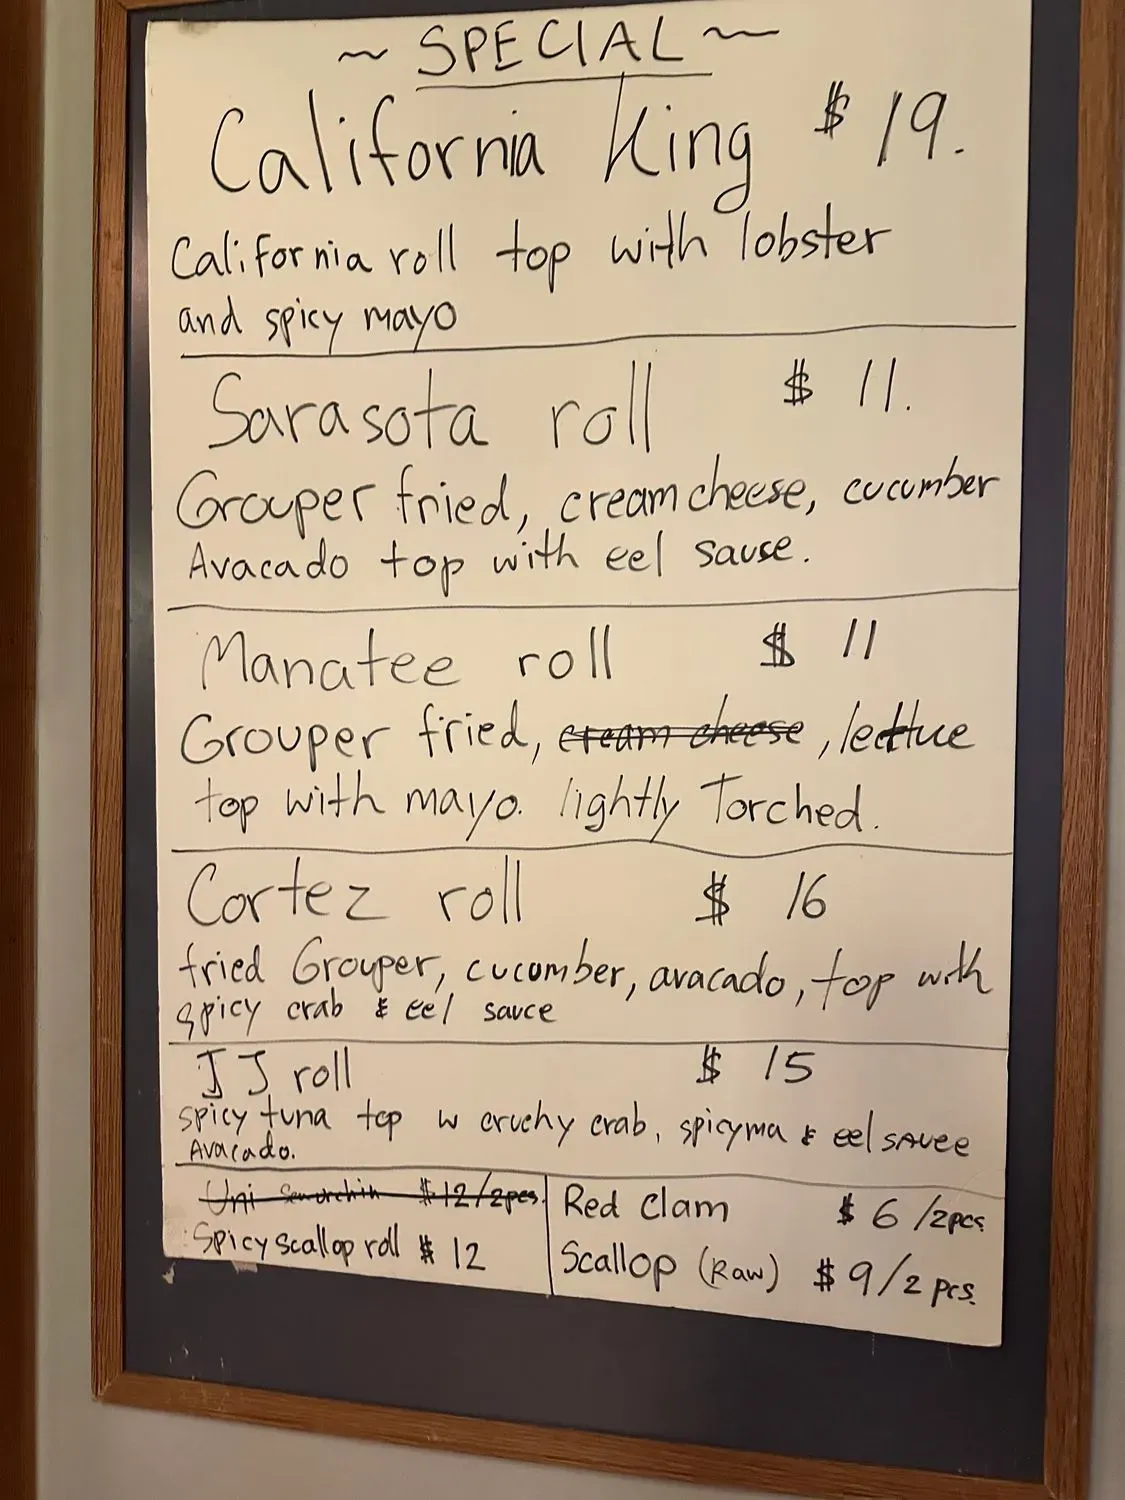 ~ SPECIAL ~
California King $ 19.
California roll top with lobster
and spicy mayo
Sarasota roll $ 11.
Grouper fried, cream cheese, cucumber
Avacado top with eel sause.
Manatee roll $ 11
Grouper fried, cream cheese, lettuce
top with mayo. lightly Torched.
Cortez roll $ 16
fried Grouper, cucumber, avacado, top with
spicy crab & eel sauce
JJ roll $ 15
spicy tuna top w cruchy crab, spicyma & eel sauce
Avacado.
Uni Sea urchin $12/2pcs.
Spicy scallop roll $ 12
Red Clam $ 6 /2pcs
Scallop (Raw) $ 9/2 pcs.